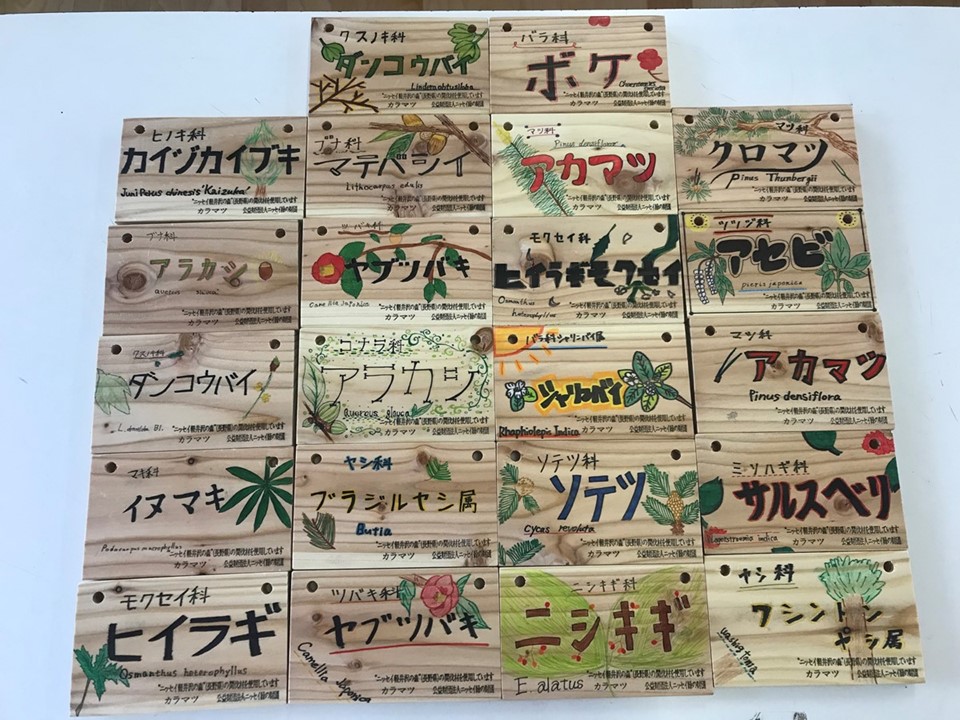 クスノキ科
ダンコウバイ
"ニッセイ軽井沢の森"(長野県)の間伐材を使用しています
カラマツ 公益財団法人ニッセイ緑の財団
バラ科
ボケ
"ニッセイ軽井沢の森"(長野県)の間伐材を使用しています
カラマツ 公益財団法人ニッセイ緑の財団
ヒノキ科
カイヅカイブキ
Juniperus chinesis 'Kaizuka'
"ニッセイ軽井沢の森"(長野県)の間伐材を使用しています
カラマツ 公益財団法人ニッセイ緑の財団
ブナ科
マテバシイ
Lithocarpus edulis
"ニッセイ軽井沢の森"(長野県)の間伐材を使用しています
カラマツ 公益財団法人ニッセイ緑の財団
マツ科
Pinus densiflora
アカマツ
"ニッセイ軽井沢の森"(長野県)の間伐材を使用しています
カラマツ 公益財団法人ニッセイ緑の財団
マツ科
クロマツ
Pinus Thunbergii
"ニッセイ軽井沢の森"(長野県)の間伐材を使用しています
カラマツ 公益財団法人ニッセイ緑の財団
ブナ科
アラカシ
"ニッセイ軽井沢の森"(長野県)の間伐材を使用しています
カラマツ 公益財団法人ニッセイ緑の財団
ツバキ科
ヤブツバキ
Camellia Japonica
"ニッセイ軽井沢の森"(長野県)の間伐材を使用しています
カラマツ 公益財団法人ニッセイ緑の財団
モクセイ科
ヒイラギモクセイ
Osmanthus
heterophyllus
"ニッセイ軽井沢の森"(長野県)の間伐材を使用しています
カラマツ 公益財団法人ニッセイ緑の財団
ツツジ科
アセビ
pieris japonica
"ニッセイ軽井沢の森"(長野県)の間伐材を使用しています
カラマツ 公益財団法人ニッセイ緑の財団
クスノキ科
ダンコウバイ
"ニッセイ軽井沢の森"(長野県)の間伐材を使用しています
カラマツ 公益財団法人ニッセイ緑の財団
コナラ科
アラカシ
Quercus glauca
"ニッセイ軽井沢の森"(長野県)の間伐材を使用しています
カラマツ 公益財団法人ニッセイ緑の財団
バラ科シャリンバイ属
シャリンバイ
Rhaphiolepis Indica
"ニッセイ軽井沢の森"(長野県)の間伐材を使用しています
カラマツ 公益財団法人ニッセイ緑の財団
マツ科
アカマツ
Pinus densiflora
"ニッセイ軽井沢の森"(長野県)の間伐材を使用しています
カラマツ 公益財団法人ニッセイ緑の財団
マキ科
イヌマキ
Podocarpus macrophyllus
"ニッセイ軽井沢の森"(長野県)の間伐材を使用しています
カラマツ 公益財団法人ニッセイ緑の財団
ヤシ科
ブラジルヤシ属
Butia
"ニッセイ軽井沢の森"(長野県)の間伐材を使用しています
カラマツ 公益財団法人ニッセイ緑の財団
ソテツ科
ソテツ
Cycas revoluta
"ニッセイ軽井沢の森"(長野県)の間伐材を使用しています
カラマツ 公益財団法人ニッセイ緑の財団
ミソハギ科
サルスベリ
Lagerstroemia indica
"ニッセイ軽井沢の森"(長野県)の間伐材を使用しています
カラマツ 公益財団法人ニッセイ緑の財団
モクセイ科
ヒイラギ
Osmanthus heterophyllus
"ニッセイ軽井沢の森"(長野県)の間伐材を使用しています
カラマツ 公益財団法人ニッセイ緑の財団
ツバキ科
ヤブツバキ
Camellia Japonica
"ニッセイ軽井沢の森"(長野県)の間伐材を使用しています
カラマツ 公益財団法人ニッセイ緑の財団
ニシキギ科
ニシキギ
E. alatus
"ニッセイ軽井沢の森"(長野県)の間伐材を使用しています
カラマツ 公益財団法人ニッセイ緑の財団
ヤシ科
ワシントン
ヤシ属
"ニッセイ軽井沢の森"(長野県)の間伐材を使用しています
カラマツ 公益財団法人ニッセイ緑の財団